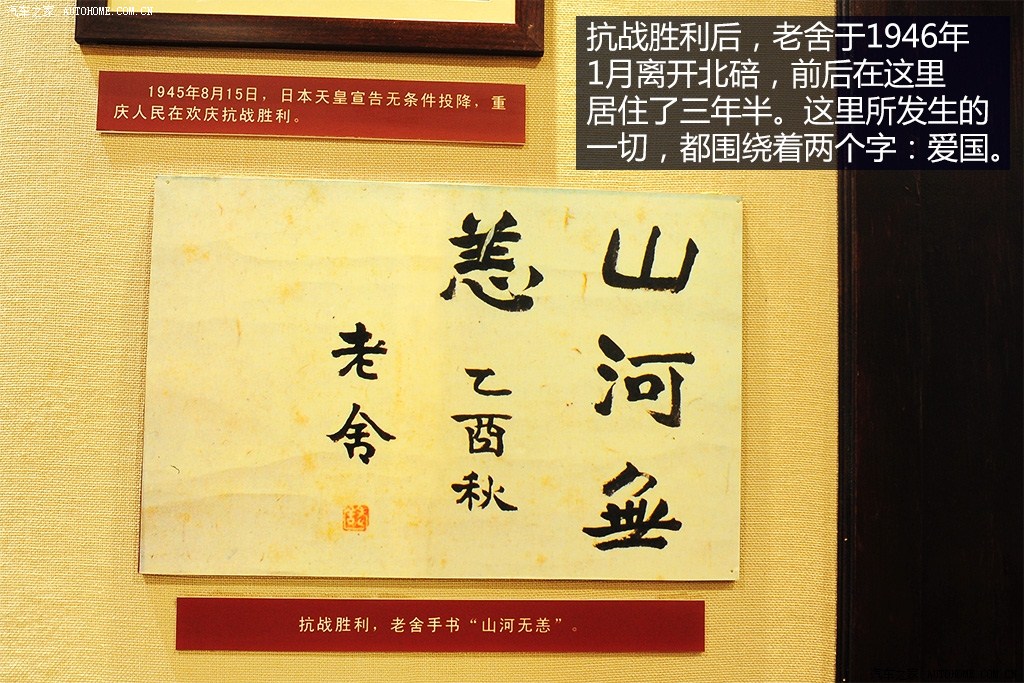 汽车之家 AUTOHOME.COM.CN
抗战胜利后，老舍于1946年
1月离开北碚，前后在这里
居住了三年半。这里所发生的
一切，都围绕着两个字：爱国。
1945年8月15日，日本天皇宣告无条件投降，重
庆人民在欢庆抗战胜利。
山河無
恙
乙酉秋
老舍
抗战胜利，老舍手书“山河无恙”。